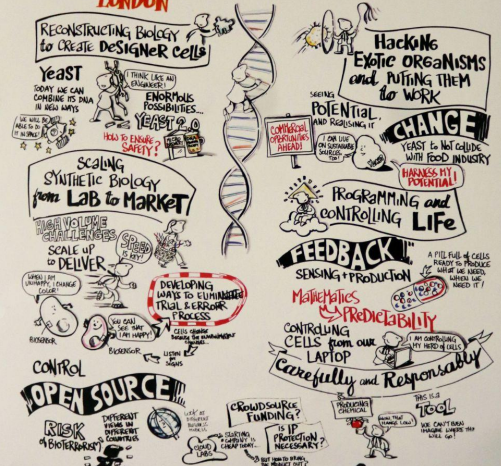 LONDON
RECONSTRUCTING BIOLOGY
to CREATE DESIGNER CELLS
YEAST
TODAY WE CAN
COMBINE ITS DNA
IN NEW WAYS
I THINK LIKE AN
ENGINEER!
ENORMOUS
POSSIBILITIES...
YEAST 2.0
WE WILL BE
ABLE TO DO
IT IN SPACE!
HOW TO ENSURE
SAFETY?
SCALING
SYNTHETIC BIOLOGY
from LAB to MARKET
HIGH VOLUME
CHALLENGES
SPEED
IS KEY!
SCALE UP
to DELIVER
WHEN I AM
UNHAPPY, I CHANGE
COLOR!
BIOSENSOR
YOU CAN
SEE THAT
I AM HAPPY!
BIOSENSOR
DEVELOPING
WAYS TO ELIMINATE
TRIAL & ERROR
PROCESS
CELLS CHANGE
LISTEN
for
SIGNS
CONTROL
OPEN SOURCE
RISK
OF BIOTERRORISM?
DIFFERENT
VIEWS IN
DIFFERENT
COUNTRIES
LOOK AT
DIFFERENT
CLOUD
LABS
STARTING
A COMPANY IS
CHEAP TODAY...
CROWDSOURCE
FUNDING?
IS IP
PROTECTION
NECESSARY?
BUT HOW TO BRING
THE PRODUCT OUT?
HACKING
EXOTIC ORGANISMS
and PUTTING THEM
to WORK
SEEING
POTENTIAL
AND REALISING IT
COMMERCIAL
OPPORTUNITIES
AHEAD!
I CAN LIVE
ON SUSTAINABLE
SOURCES
TOO!
CHANGE
YEAST to NOT COLLIDE
WITH FOOD INDUSTRY
HARNESS MY
POTENTIAL!
PROGRAMMING and
CONTROLLING LIFE
FEEDBACK!
SENSING + PRODUCTION
A PILL FULL of CELLS
READY to PRODUCE
WHAT WE NEED,
WHEN WE
NEED IT!
MATHEMATICS
PREDICTABILITY
CONTROLLING
CELLS from OUR
LAPTOP
I AM CONTROLLING
MY HERD of CELLS
Carefully and Responsably
PRODUCING
CHEMICAL
THIS is a
TOOL
WE CAN'T EVEN
IMAGINE WHERE THIS
WILL GO!